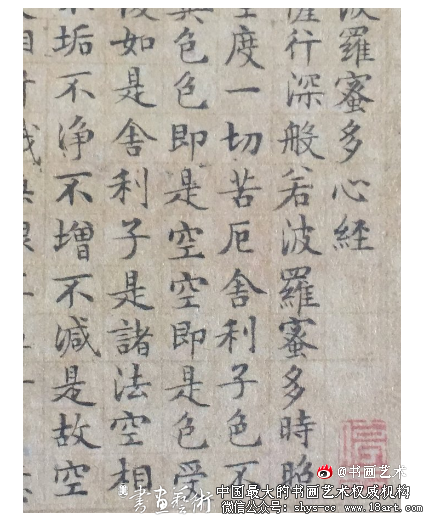 波羅蜜多心経
薩行深般若波羅蜜多時照
空度一切苦厄舍利子色不
異色色即是空空即是色受
復如是舍利子是諸法空相
不垢不浄不增不減是故空
@书画艺术
書画藝術
中国最大的书画艺术权威机构
微信公众号: shys-cc www.18art.com